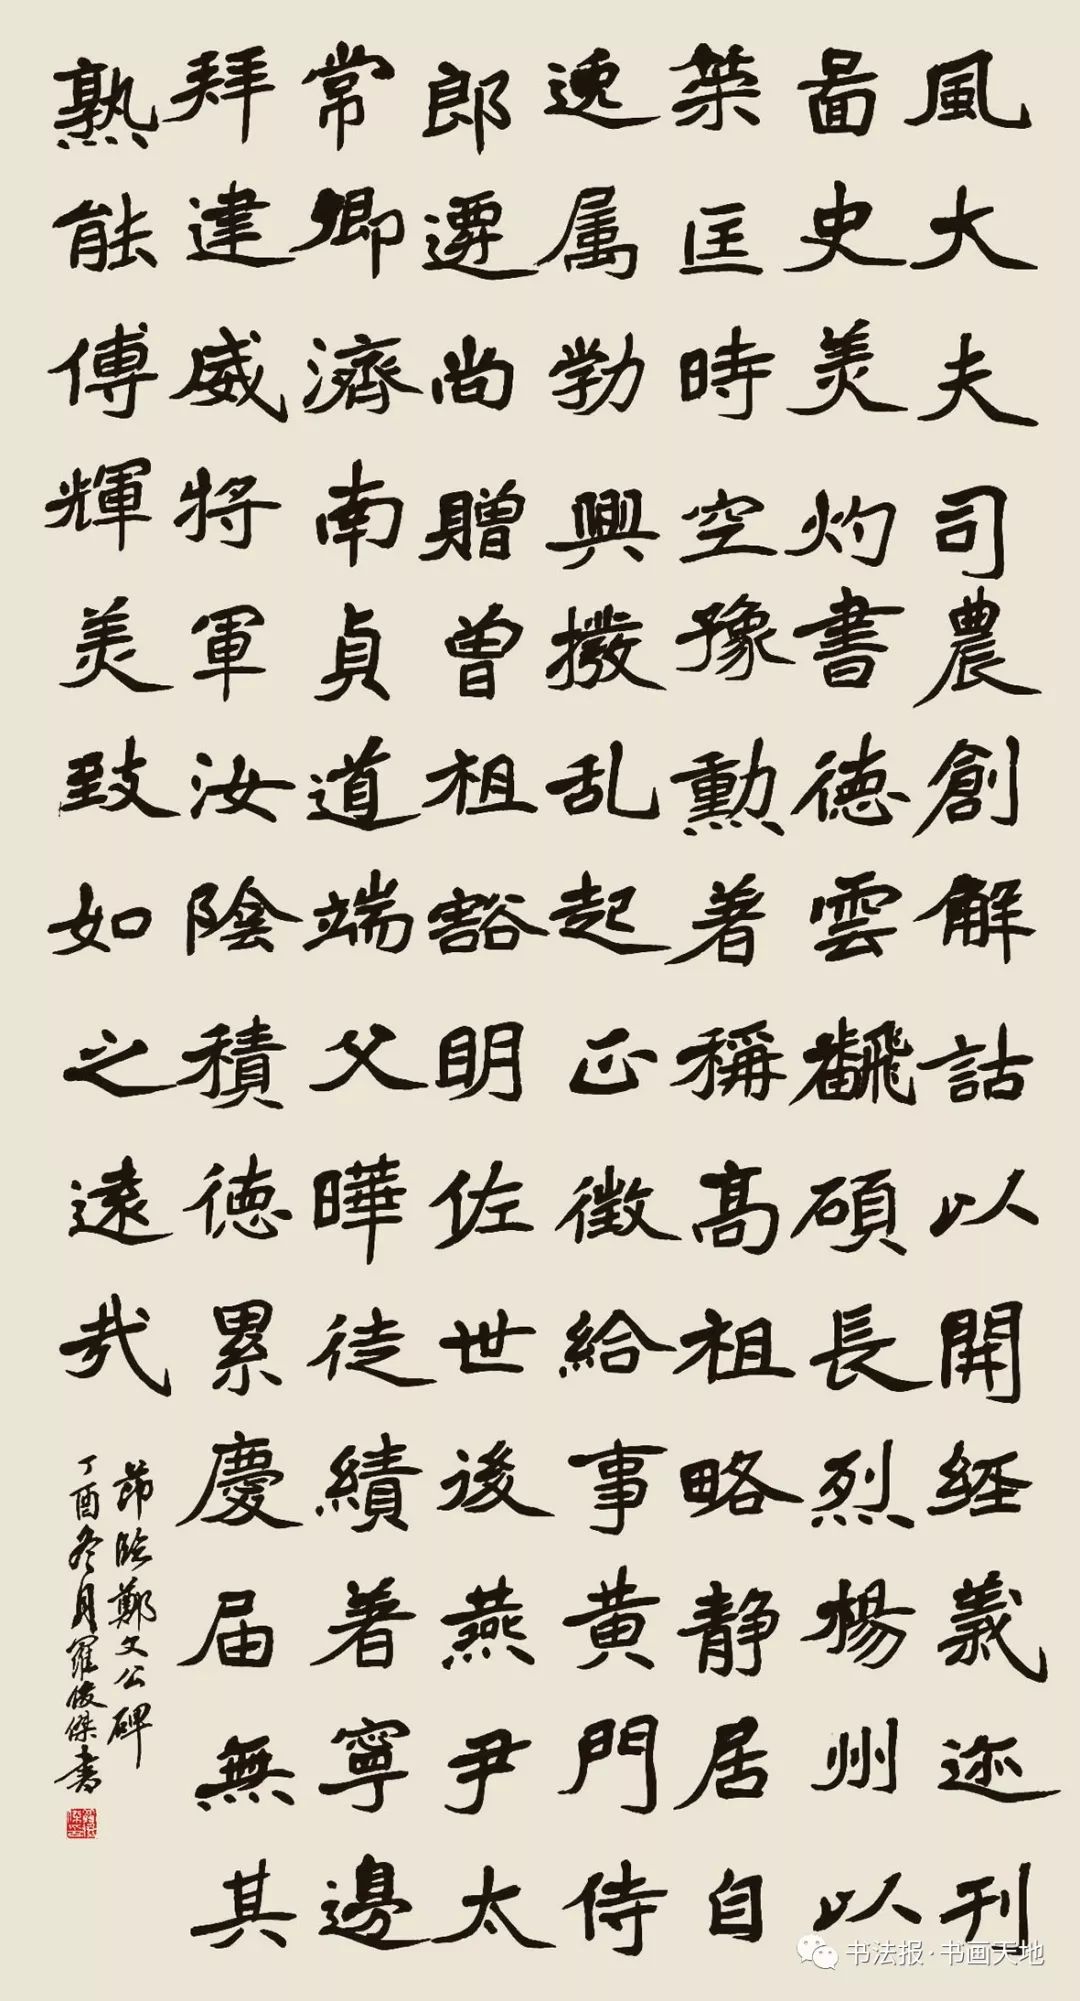 風大夫司農創解詁以開經義迹刊
啚史美灼書德雲飜碩長烈楊州以
策匡時空豫勳著稱高祖略静居自
逸属勃興撥乱起正徵給事黄門侍
郎遷尚贈曾祖豁明佐世後燕尹太
常卿濟南貞道端父曄徒績著寧邊
拜建威將軍汝陰積德累慶届無其
熟能傅輝美致如之遠哉
節臨鄭文公碑
丁酉冬月羅俊傑書
书法报·书画天地